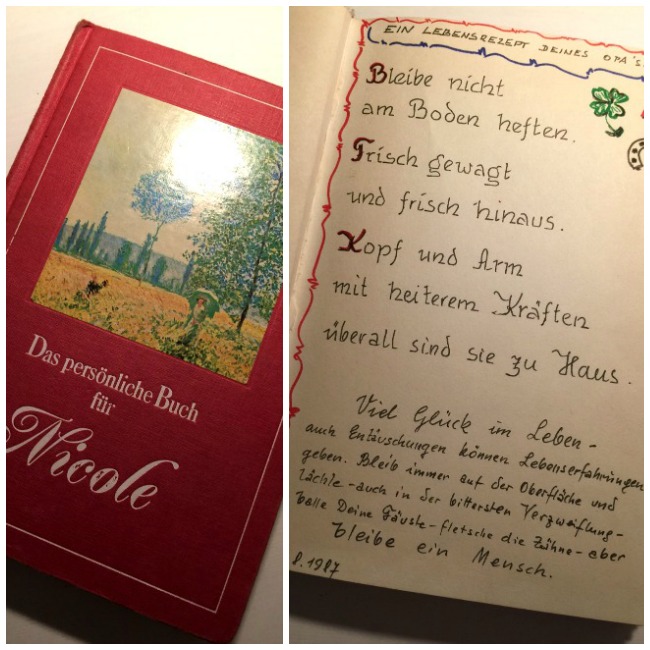 Das persönliche Buch
für
Nicole
EIN LEBENSREZEPT DEINES OPA'S
Bleibe nicht
am Boden heften.
Frisch gewagt
und frisch hinaus.
Kopf und Arm
mit heiterem Kräften
überall sind sie zu Haus.
Viel Glück im Leben -
auch Entäuschungen können Lebenserfahrungen
geben. Bleib immer auf der Oberfläche und
lächle - auch in der bittersten Verzweiflung -
balle Deine Fäuste - fletsche die Zähne - aber
bleibe ein Mensch.
8.1987